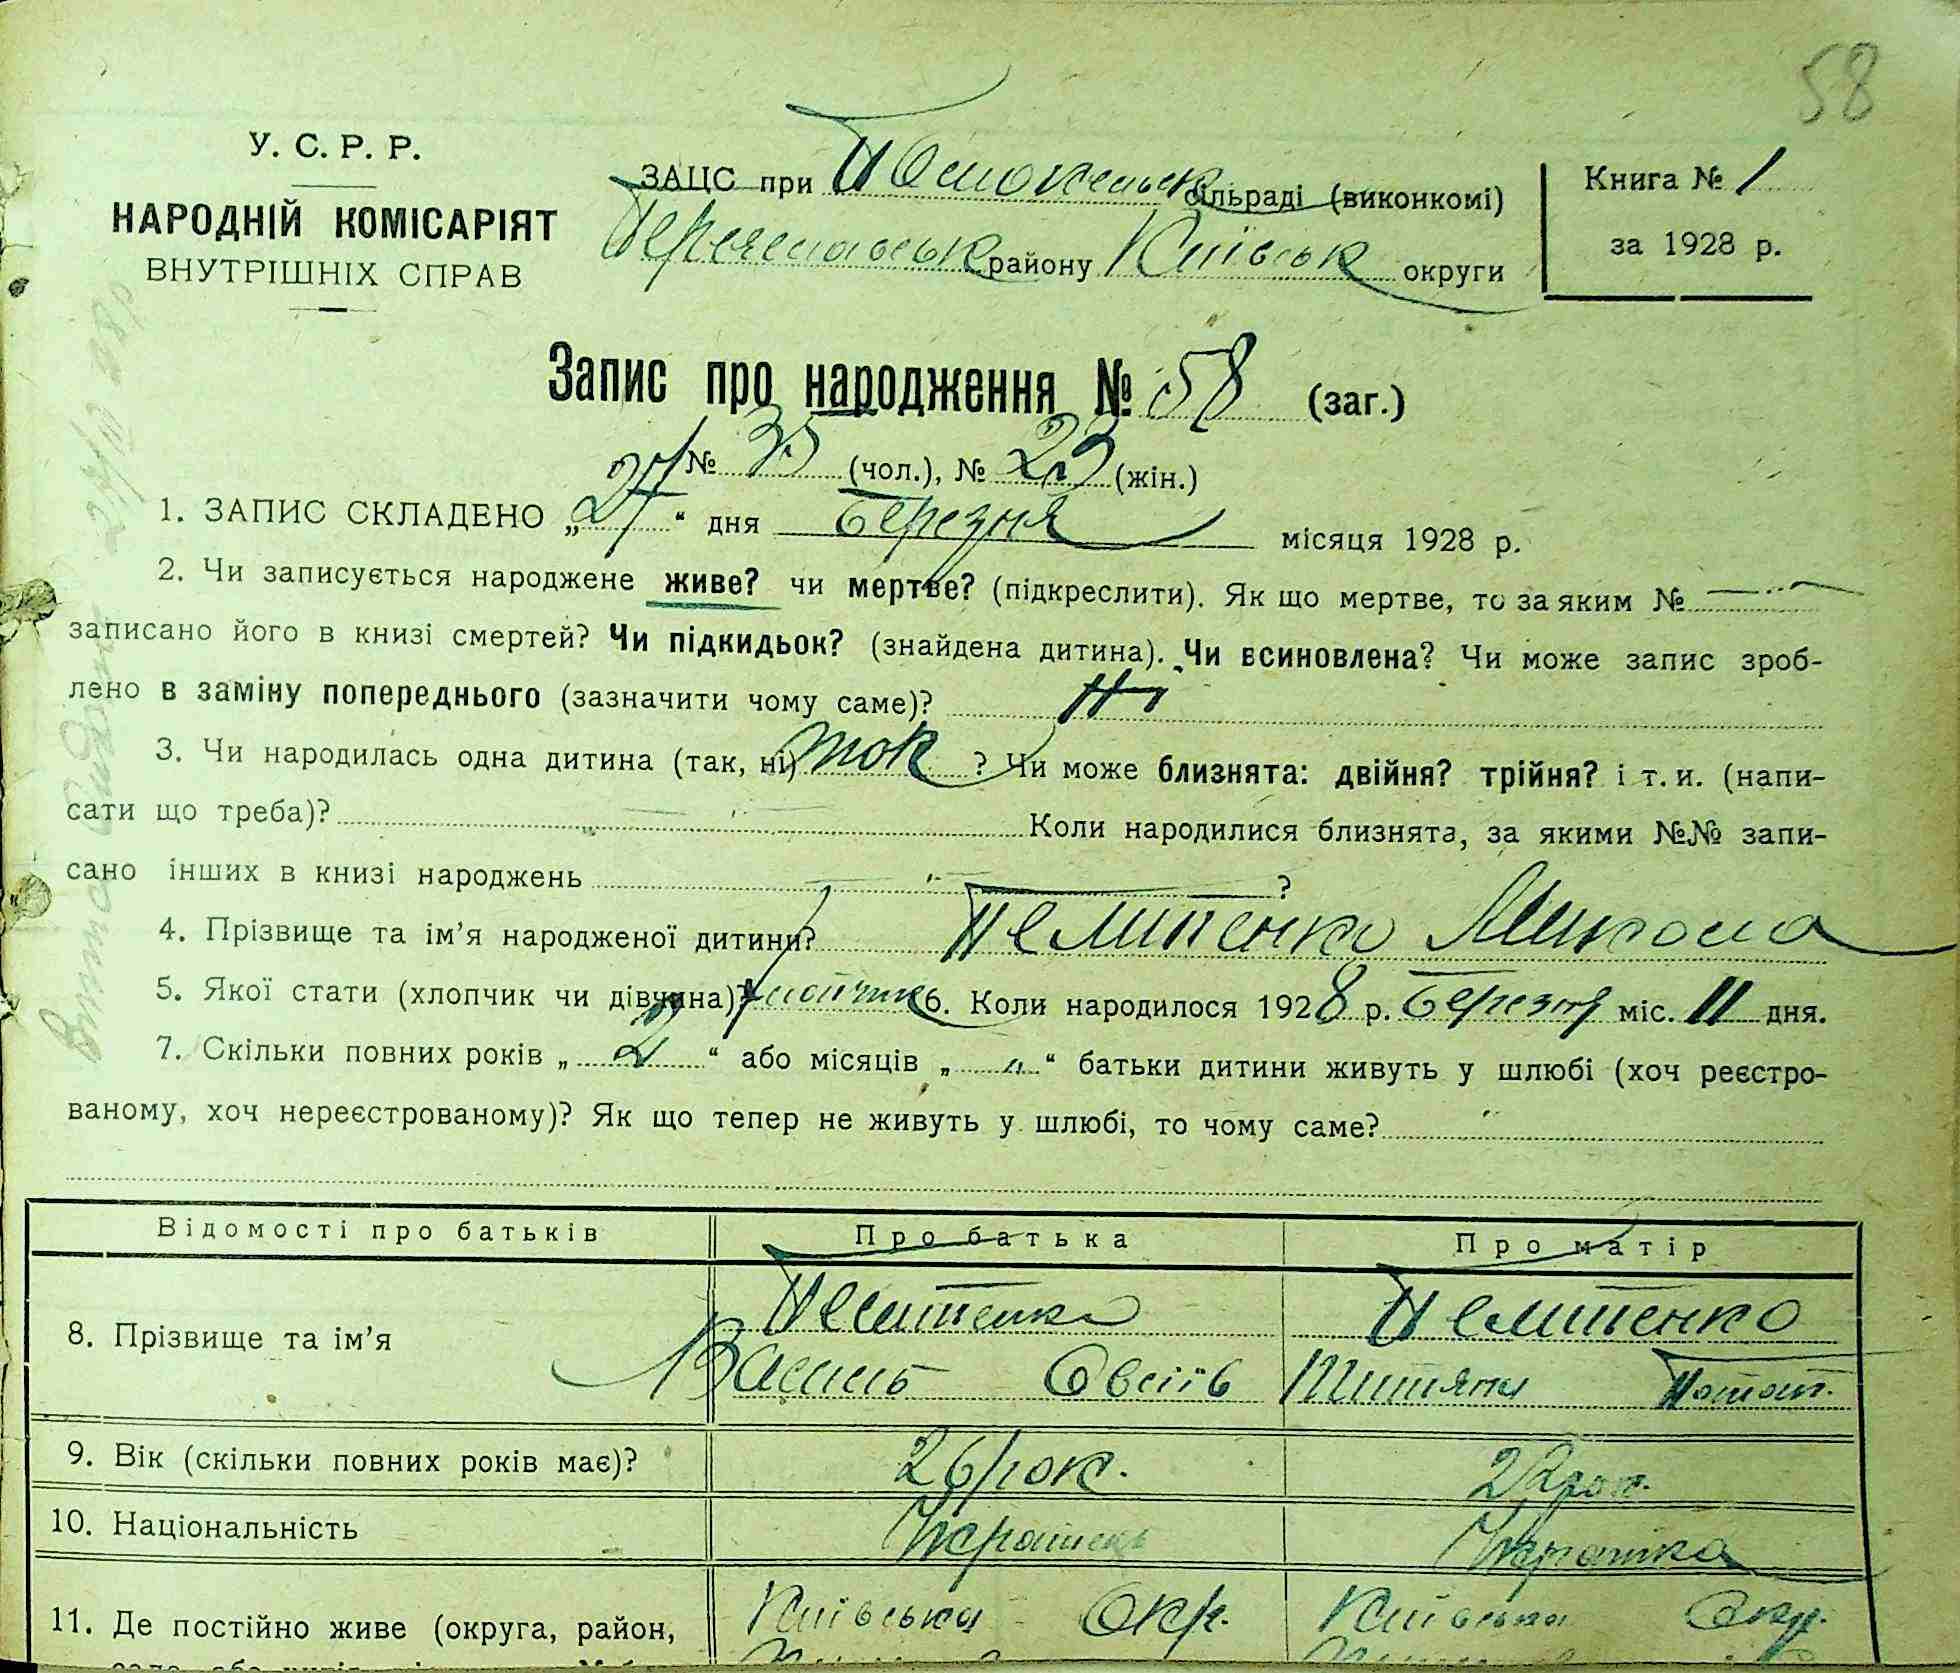 58
У. С. Р. Р.
НАРОДНІЙ КОМІСАРІЯТ
ВНУТРІШНІХ СПРАВ
ЗАЦС при сільраді (виконкомі)
району Київськ округи
Книга № 1
за 1928 р.
Запис про народження № 58 (заг.)
№ 35 (чол.), № 23 (жін.)
1. ЗАПИС СКЛАДЕНО „27“ дня Березня місяця 1928 р.
2. Чи записується народжене живе? чи мертве? (підкреслити). Як що мертве, то за яким №
записано його в книзі смертей? Чи підкидьок? (знайдена дитина). Чи всиновлена? Чи може запис зроб-
лено в заміну попереднього (зазначити чому саме)? Ні
3. Чи народилась одна дитина (так, ні) так ? Чи може близнята: двійня? трійня? і т. и. (напи-
сати що треба)? Коли народилися близнята, за якими №№ запи-
сано інших в книзі народжень ?
4. Прізвище та ім’я народженої дитини? Пелипенко Микола
5. Якої стати (хлопчик чи дівчина)? хлопчик 6. Коли народилося 1928 р. Березня міс. 11 дня.
7. Скільки повних років „ 2 “ або місяців „ „ “ батьки дитини живуть у шлюбі (хоч реєстро-
ваному, хоч нереєстрованому)? Як що тепер не живуть у шлюбі, то чому саме?
Відомості про батьків Про батька Про матір
8. Прізвище та ім’я Пелипенко Пелипенко
Василь Овсіїв Тетяна Потап.
9. Вік (скільки повних років має)? 26 рок. 22 рок.
10. Національність Українець Українка
11. Де постійно живе (округа, район, Київська Окр. Київська Окр.